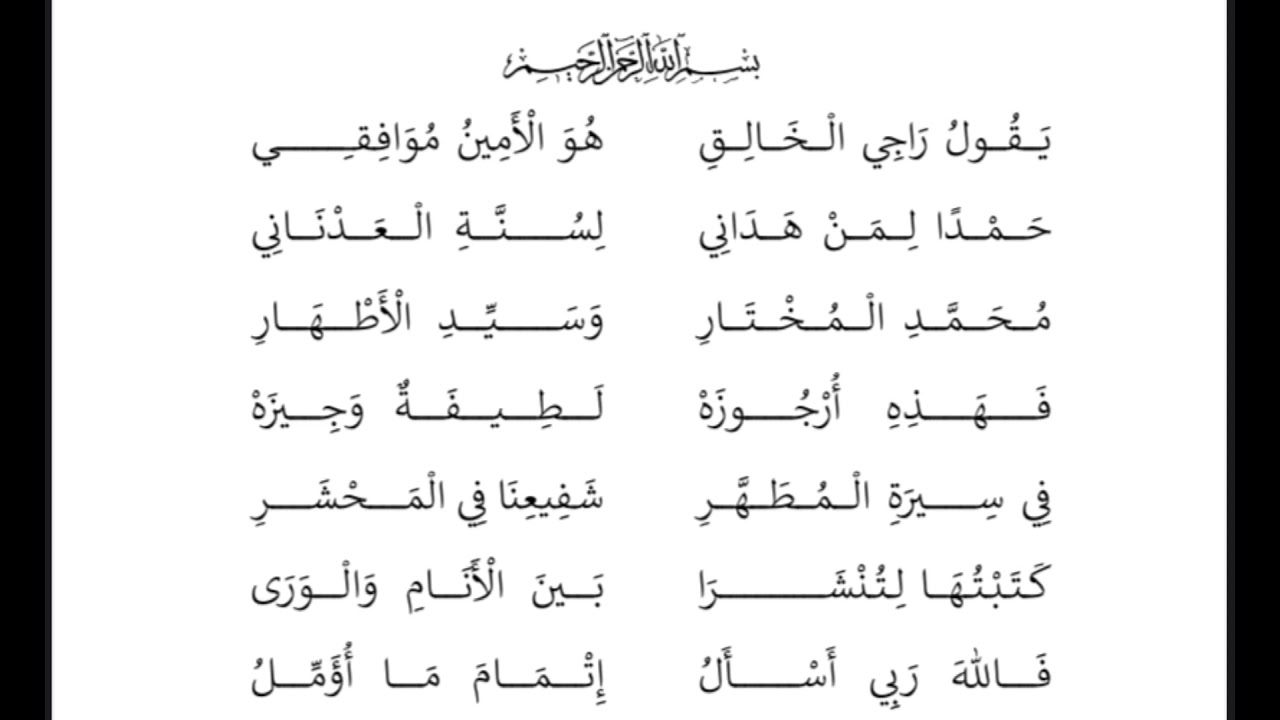 بسم الله الرحمن الرحيم
يَقُولُ رَاجِي الْخَالِقِ هُوَ الْأَمِينُ مُوَافِقِي
حَمْدًا لِمَنْ هَدَانِي لِسُنَّةِ الْعَدْنَانِي
مُحَمَّدِ الْمُخْتَارِ وَسَيِّدِ الْأَطْهَارِ
فَهَذِهِ أُرْجُوزَهْ لَطِيفَةٌ وَجِيزَهْ
فِي سِيرَةِ الْمُطَهَّرِ شَفِيعِنَا فِي الْمَحْشَرِ
كَتَبْتُهَا لِتُنْشَرَا بَينَ الْأَنَامِ وَالْوَرَى
فَاللهَ رَبِي أَسْأَلُ إِتْمَامَ مَا أُؤَمِّلُ